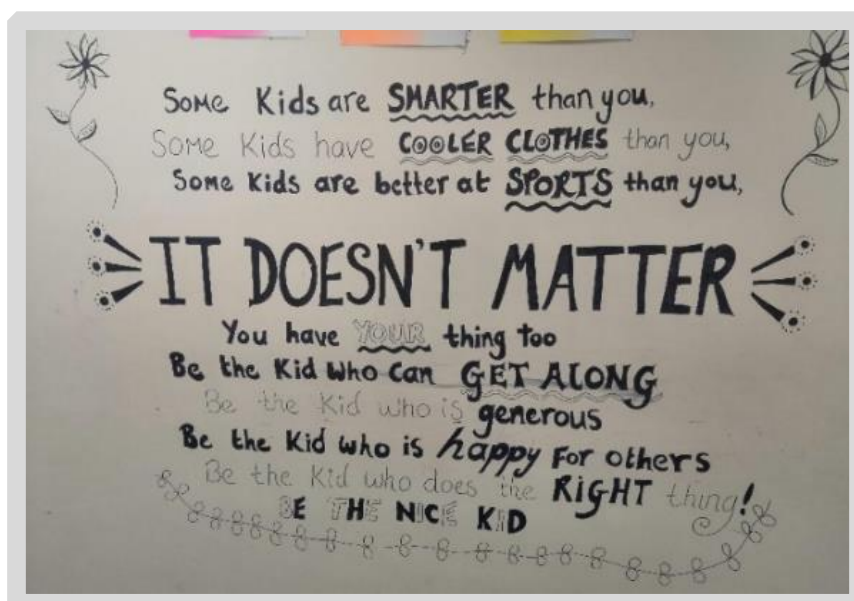 Some Kids are SMARTER than you,
Some Kids have COOLER CLOTHES than you,
Some Kids are better at SPORTS than you,
IT DOESN'T MATTER
You have YOUR thing too
Be the Kid who can GET ALONG
Be the Kid who is generous
Be the Kid who is happy For others
Be the Kid who does the RiGHT thing!
BE THE NICE KID